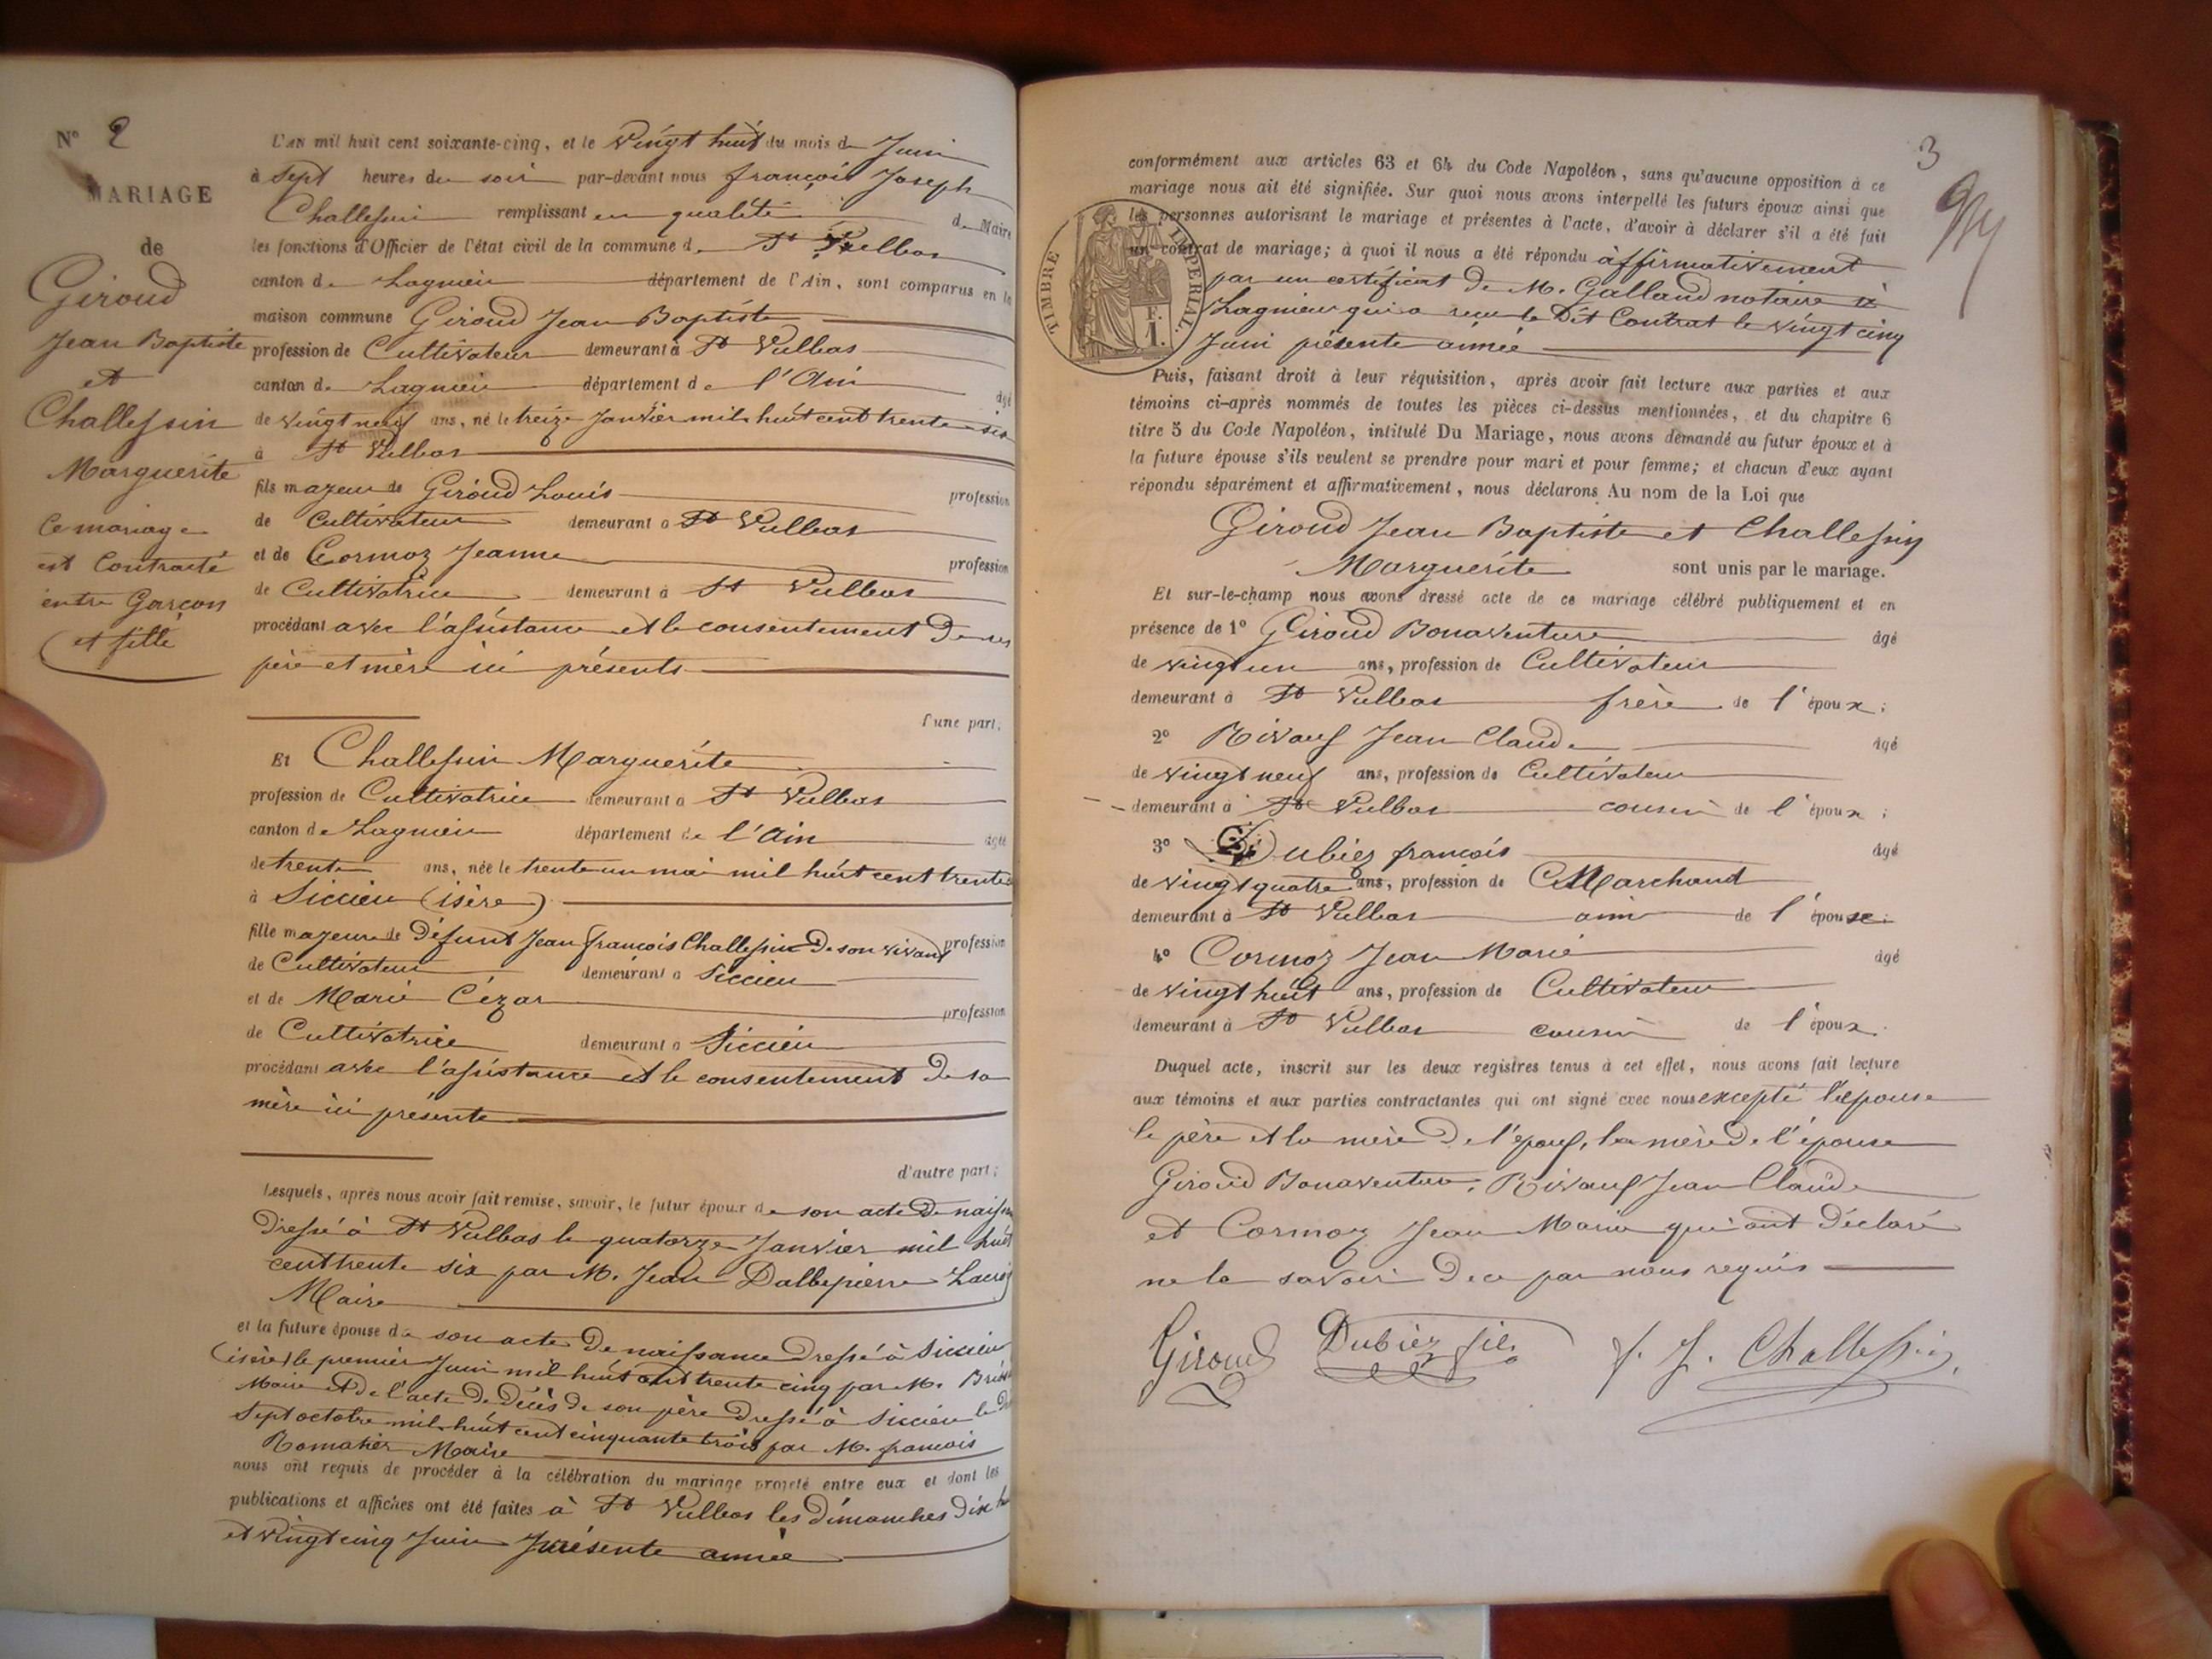 N° 2
MARIAGE
de
Giroud
Jean Baptiste
et
Challessin
Marguerite
Ce mariage
est Contracté
entre Garçon
et fille
L'AN mil huit cent soixante-cinq, et le vingt huit du mois de Juin
à sept heures du soir par-devant nous françois Joseph
Challessin remplissant en qualité de Maire
les fonctions d'Officier de l'état civil de la commune de St Vulbas
canton de Lagnieu département de l'Ain, sont comparus en la
maison commune Giroud Jean Baptiste
profession de Cultivateur demeurant à St Vulbas
canton de Lagnieu département de l'Ain âgé
de vingt neuf ans, né le treize Janvier mil huit cent trente six
à St Vulbas
fils majeur de Giroud Louis profession
de Cultivateur demeurant à St Vulbas
et de Cormoz Jeanne profession
de Cultivatrice demeurant à St Vulbas
procédant avec l'assistance et le consentement de ses
père et mère ici présents
d'une part;
Et Challessin Marguerite
profession de Cultivatrice demeurant à St Vulbas
canton de Lagnieu département de l'Ain âgée
de trente ans, née le trente un mai mil huit cent trente
à Siccieu (isère)
fille majeure de défunt Jean françois Challessin de son vivant profession
de Cultivateur demeurant à Siccieu
et de Marie Cézar profession
de Cultivatrice demeurant à Siccieu
procédant avec l'assistance et le consentement de sa
mère ici présente
d'autre part;
Lesquels, après nous avoir fait remise, savoir, le futur époux de son acte de naiss
dressé à St Vulbas le quatorze Janvier mil huit
cent trente six par M. Jean Dallepierre
Maire
et la future épouse de son acte de naissance dressé à Siccieu
(isère) le premier Juin mil huit cent trente cinq par M.
Maire et de l'acte de Décès de son père dressé à Siccieu le
sept octobre mil huit cent cinquante trois par M. françois
Romatier Maire
nous ont requis de procéder à la célébration du mariage projeté entre eux et dont les
publications et affiches ont été faites à St Vulbas les dimanches dix
et vingt cinq Juin présente année
3
conformément aux articles 63 et 64 du Code Napoléon, sans qu'aucune opposition à ce
mariage nous ait été signifiée. Sur quoi nous avons interpellé les futurs époux ainsi que
les personnes autorisant le mariage et présentes à l'acte, d'avoir à déclarer s'il a été fait
un contrat de mariage; à quoi il nous a été répondu affirmativement
par un certificat de M. Galland notaire à
Lagnieu qui a reçu le dit Contrat le vingt cinq
Juin présente année
TIMBRE IMPERIAL.
F.
1.
Puis, faisant droit à leur réquisition, après avoir fait lecture aux parties et aux
témoins ci-après nommés de toutes les pièces ci-dessus mentionnées, et du chapitre 6
titre 5 du Code Napoléon, intitulé Du Mariage, nous avons demandé au futur époux et à
la future épouse s'ils veulent se prendre pour mari et pour femme; et chacun d'eux ayant
répondu séparément et affirmativement, nous déclarons Au nom de la Loi que
Giroud Jean Baptiste et Challessin
Marguerite sont unis par le mariage.
Et sur-le-champ nous avons dressé acte de ce mariage célébré publiquement et en
présence de 1° Giroud Bonaventure âgé
de vingt un ans, profession de Cultivateur
demeurant à St Vulbas frère de l'époux;
2° Rivaux Jean Claude âgé
de vingt neuf ans, profession de Cultivateur
demeurant à St Vulbas cousin de l'époux;
3° Dubiez françois âgé
de vingt quatre ans, profession de Marchand
demeurant à St Vulbas ami de l'épouse.
4° Cormoz Jean Marie âgé
de vingt huit ans, profession de Cultivateur
demeurant à St Vulbas cousin de l'époux.
Duquel acte, inscrit sur les deux registres tenus à cet effet, nous avons fait lecture
aux témoins et aux parties contractantes qui ont signé avec nous excepté l'épouse
le père et la mère de l'époux, la mère de l'épouse
Giroud Bonaventure, Rivaux Jean Claude
et Cormoz Jean Marie qui ont déclaré
ne le savoir de ce par nous requis
Giroud Dubiez fils f. J. Challessin